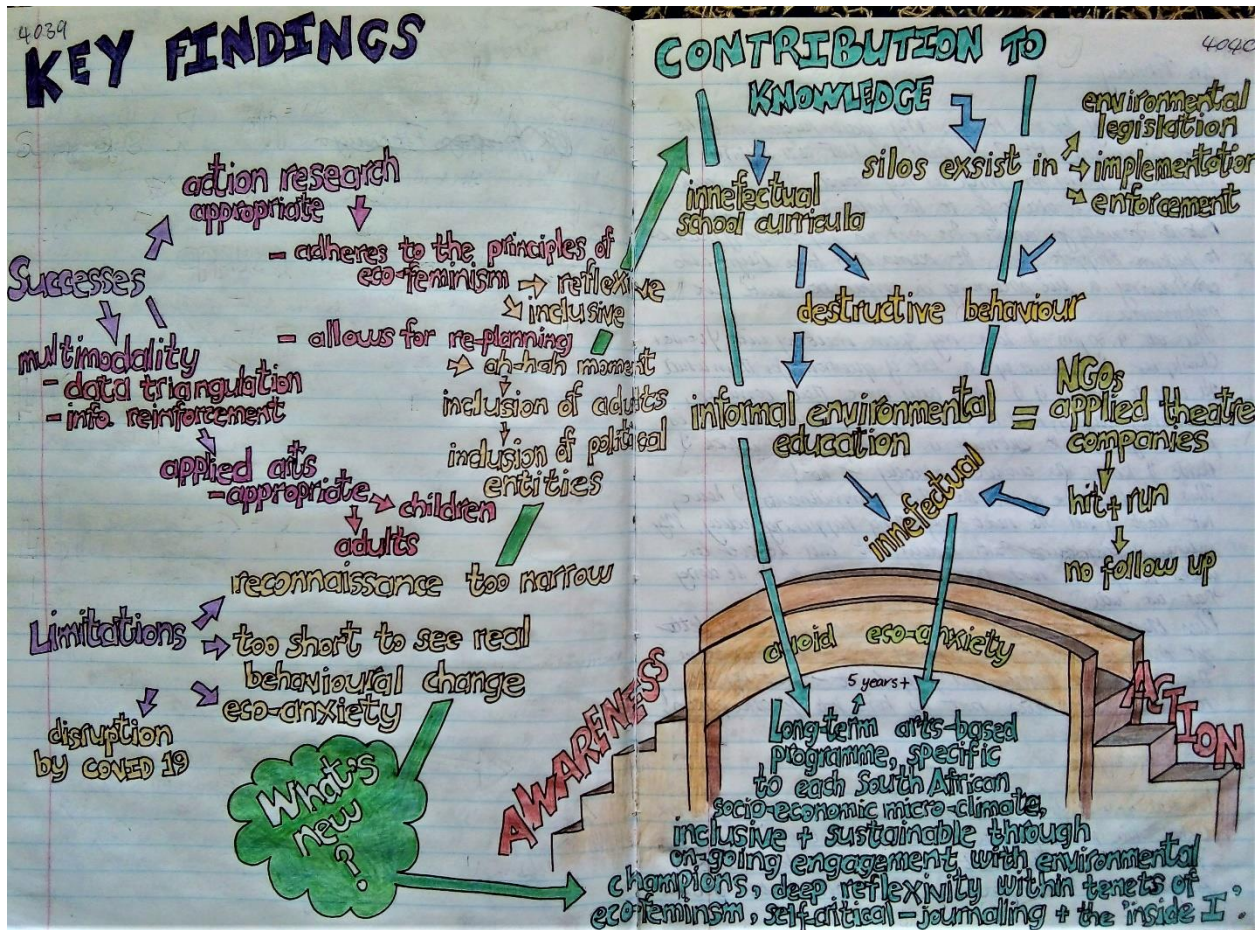 4039
KEY FINDINGS
action research
appropriate
- adheres to the principles of
eco-feminism
reflexive
inclusive
Successes
- allows for re-planning
ah-hah moment
inclusion of adults
inclusion of political
entities
multimodality
- data triangulation
- info. reinforcement
applied arts
- appropriate
children
adults
Limitations
reconnaissance too narrow
too short to see real
behavioural change
eco-anxiety
disruption
by COVID 19
What's
new
?
CONTRIBUTION TO
KNOWLEDGE
404
innefectual
school curricula
silos exsist in
environmental
legislation
implementation
enforcement
destructive behaviour
informal environmental
education
=
NGOs
applied theatre
companies
hit + run
no follow up
innefectual
AWARENESS
avoid eco-anxiety
ACTION
5 years +
Long-term arts-based
programme, specific
to each South African
socio-economic micro-climate,
inclusive + sustainable through
on-going engagement with environmental
champions, deep reflexivity within tenets of
eco-feminism, self-critical - journalling + the 'inside I'.